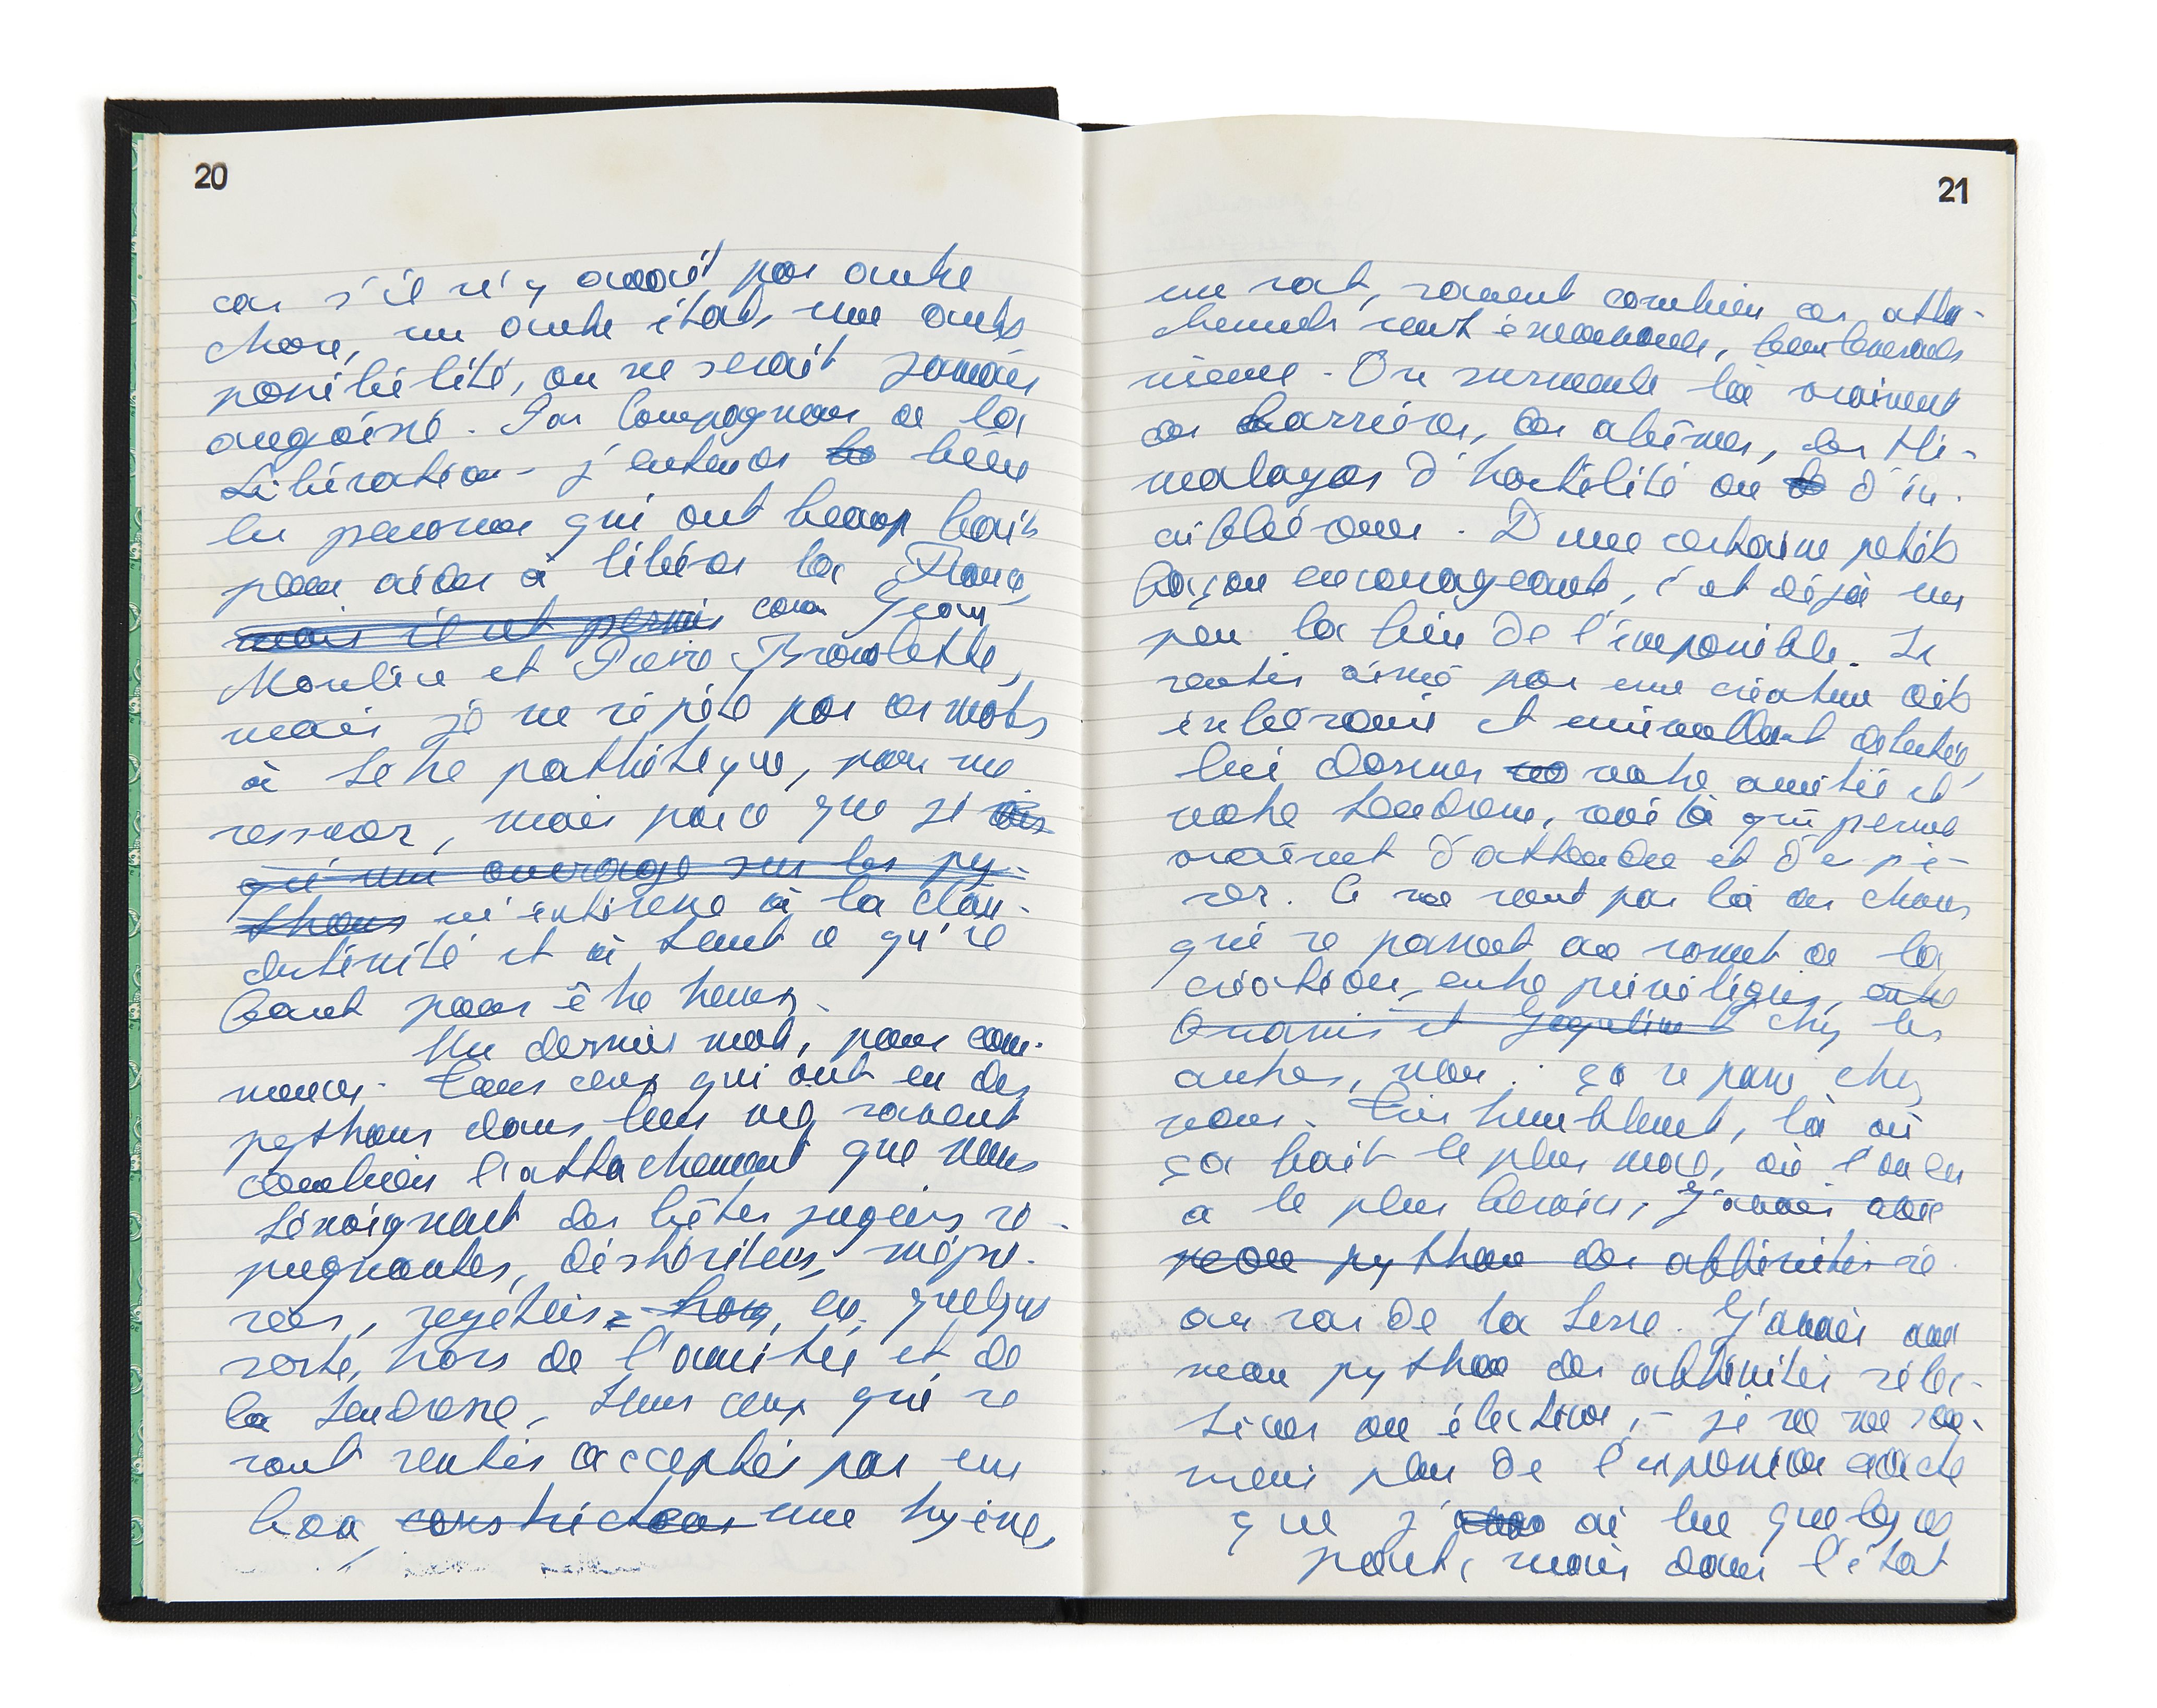 20
car s'il n'y avait pas autre
chose, un autre état, une autre
possibilité, on ne serait jamais
angoissé. Par Compagnons de la
Libération – j'entends bien
les personnes qui ont beaucoup fait
pour aider à libérer la France,
mais il est permis comme Jean
Moulin et Pierre Brossolette,
mais je ne répète pas ces mots
à titre pathétique, pour me
, mais parce que je
qui un ouvrage sur les py-
thons à la clan-
destinité et à tout ce qu'il
faut pour être heureux.
Un dernier mot, pour com-
mencer. Tous ceux qui ont eu des
pythons dans leur vie savent
combien l'attachement que nous
témoignent des bêtes jugées ré-
pugnantes, déshéritées, mépri-
sées, rejetées, hors, en quelque
sorte, hors de l'amitié et de
la tendresse, tous ceux qui se
sont sentis acceptés par un
boa constricteur une hyène,
21
un rat, savent combien ces atta-
chements sont émouvants, bouleversants
même. On surmonte là vraiment
des barrières, des abîmes, des Hi-
malayas d'hostilité ou d'in-
différence. D'une certaine petite
façon encourageante, c'est déjà un
peu la fin de l'impossible. Se
sentir aimé par une créature dite
inférieure et universellement détestée,
lui donner votre amitié et
votre tendresse, voilà qui permet
vraiment d'attendre et d'espé-
rer. Ce ne sont pas là des choses
qui se passent au sommet de la
création, entre privilégiés, entre
et chez les
autres, non: ça se passe chez
nous. Très humblement, là où
ça fait le plus mal, où l'on en
a le plus besoin, J'avais avec
mon python des affinités sé
au ras de la terre. J'avais avec
mon python des affinités sélec-
tives ou électives, – je ne me sou-
viens plus de l'expression exacte
que j'ai lue quelque
part, mais dans l'état